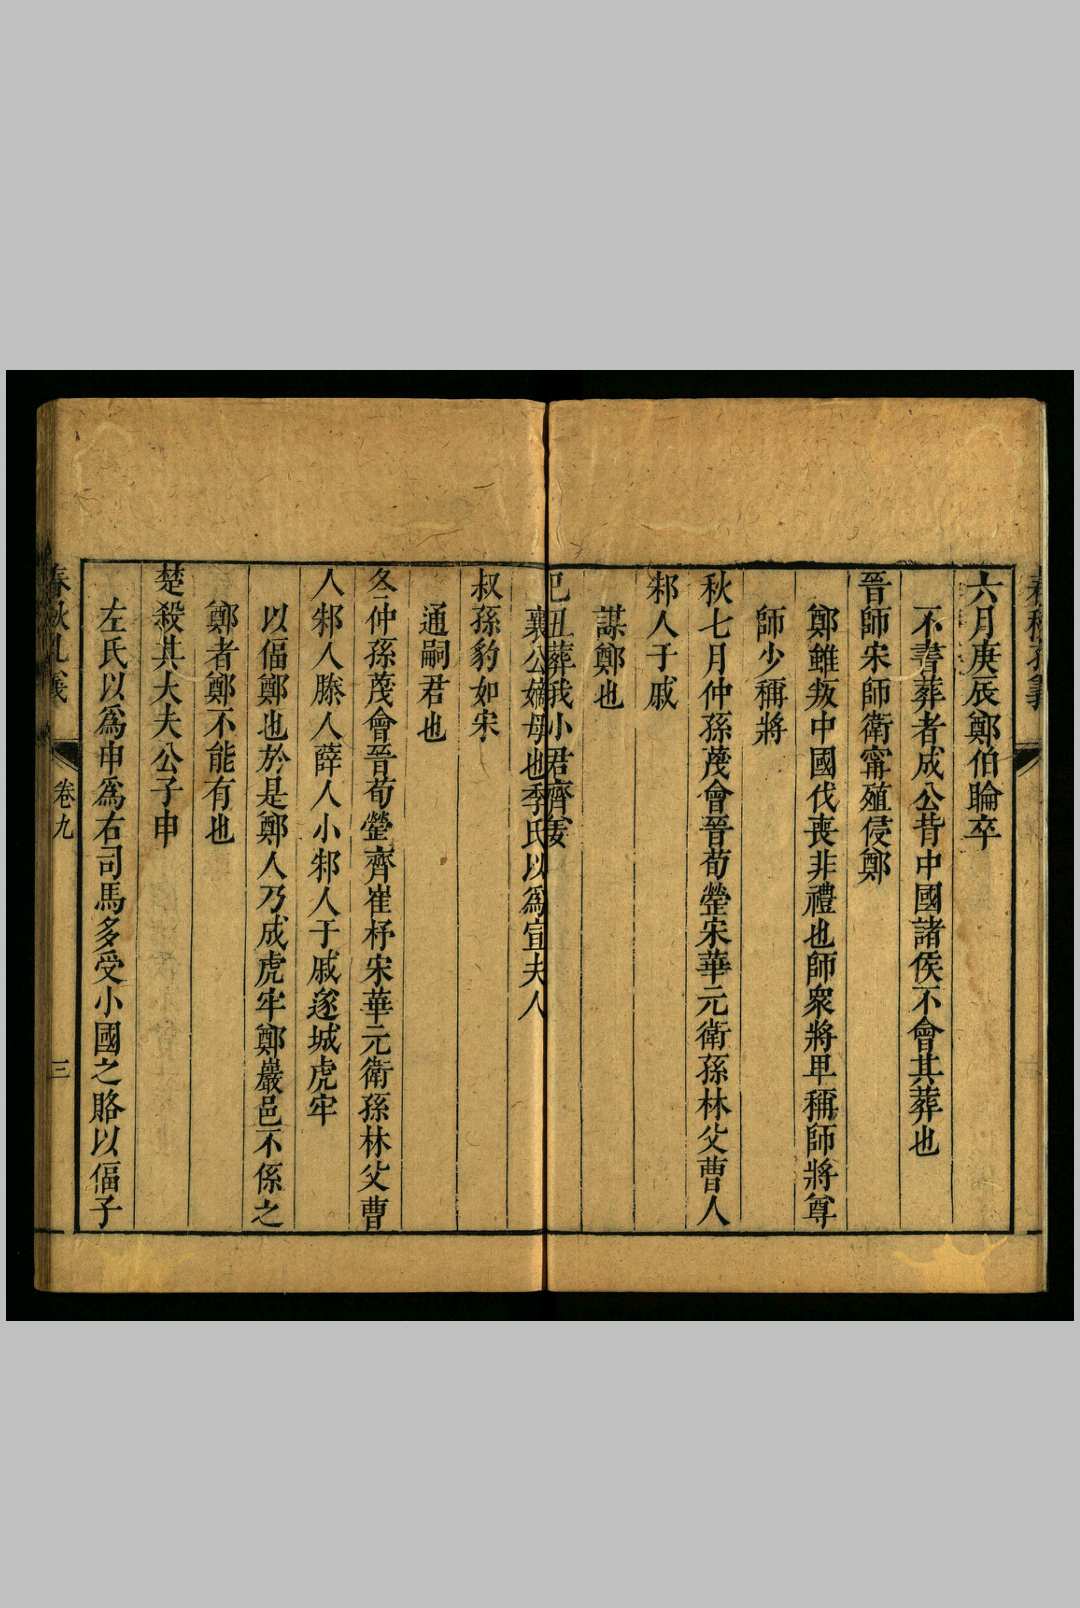 六月庚辰鄭伯睔卒
不書葬者成公背中國諸侯不會其葬也
晉師宋師衛甯殖侵鄭
鄭雖叛中國伐喪非禮也師衆將卑稱師將尊
師少稱將
秋七月仲孫蔑會晉荀罃宋華元衛孫林父曹人
邾人于戚
謀鄭也
己丑葬我小君齊姜
襄公嫡母也季氏以爲宣夫人
叔孫豹如宋
通嗣君也
冬仲孫蔑會晉荀罃齊崔杼宋華元衛孫林父曹
人邾人滕人薛人小邾人于戚遂城虎牢
以偪鄭也於是鄭人乃成虎牢鄭巖邑不係之
鄭者鄭不能有也
楚殺其大夫公子申
左氏以爲申爲右司馬多受小國之賂以偪子
春秋孔義
卷九
三